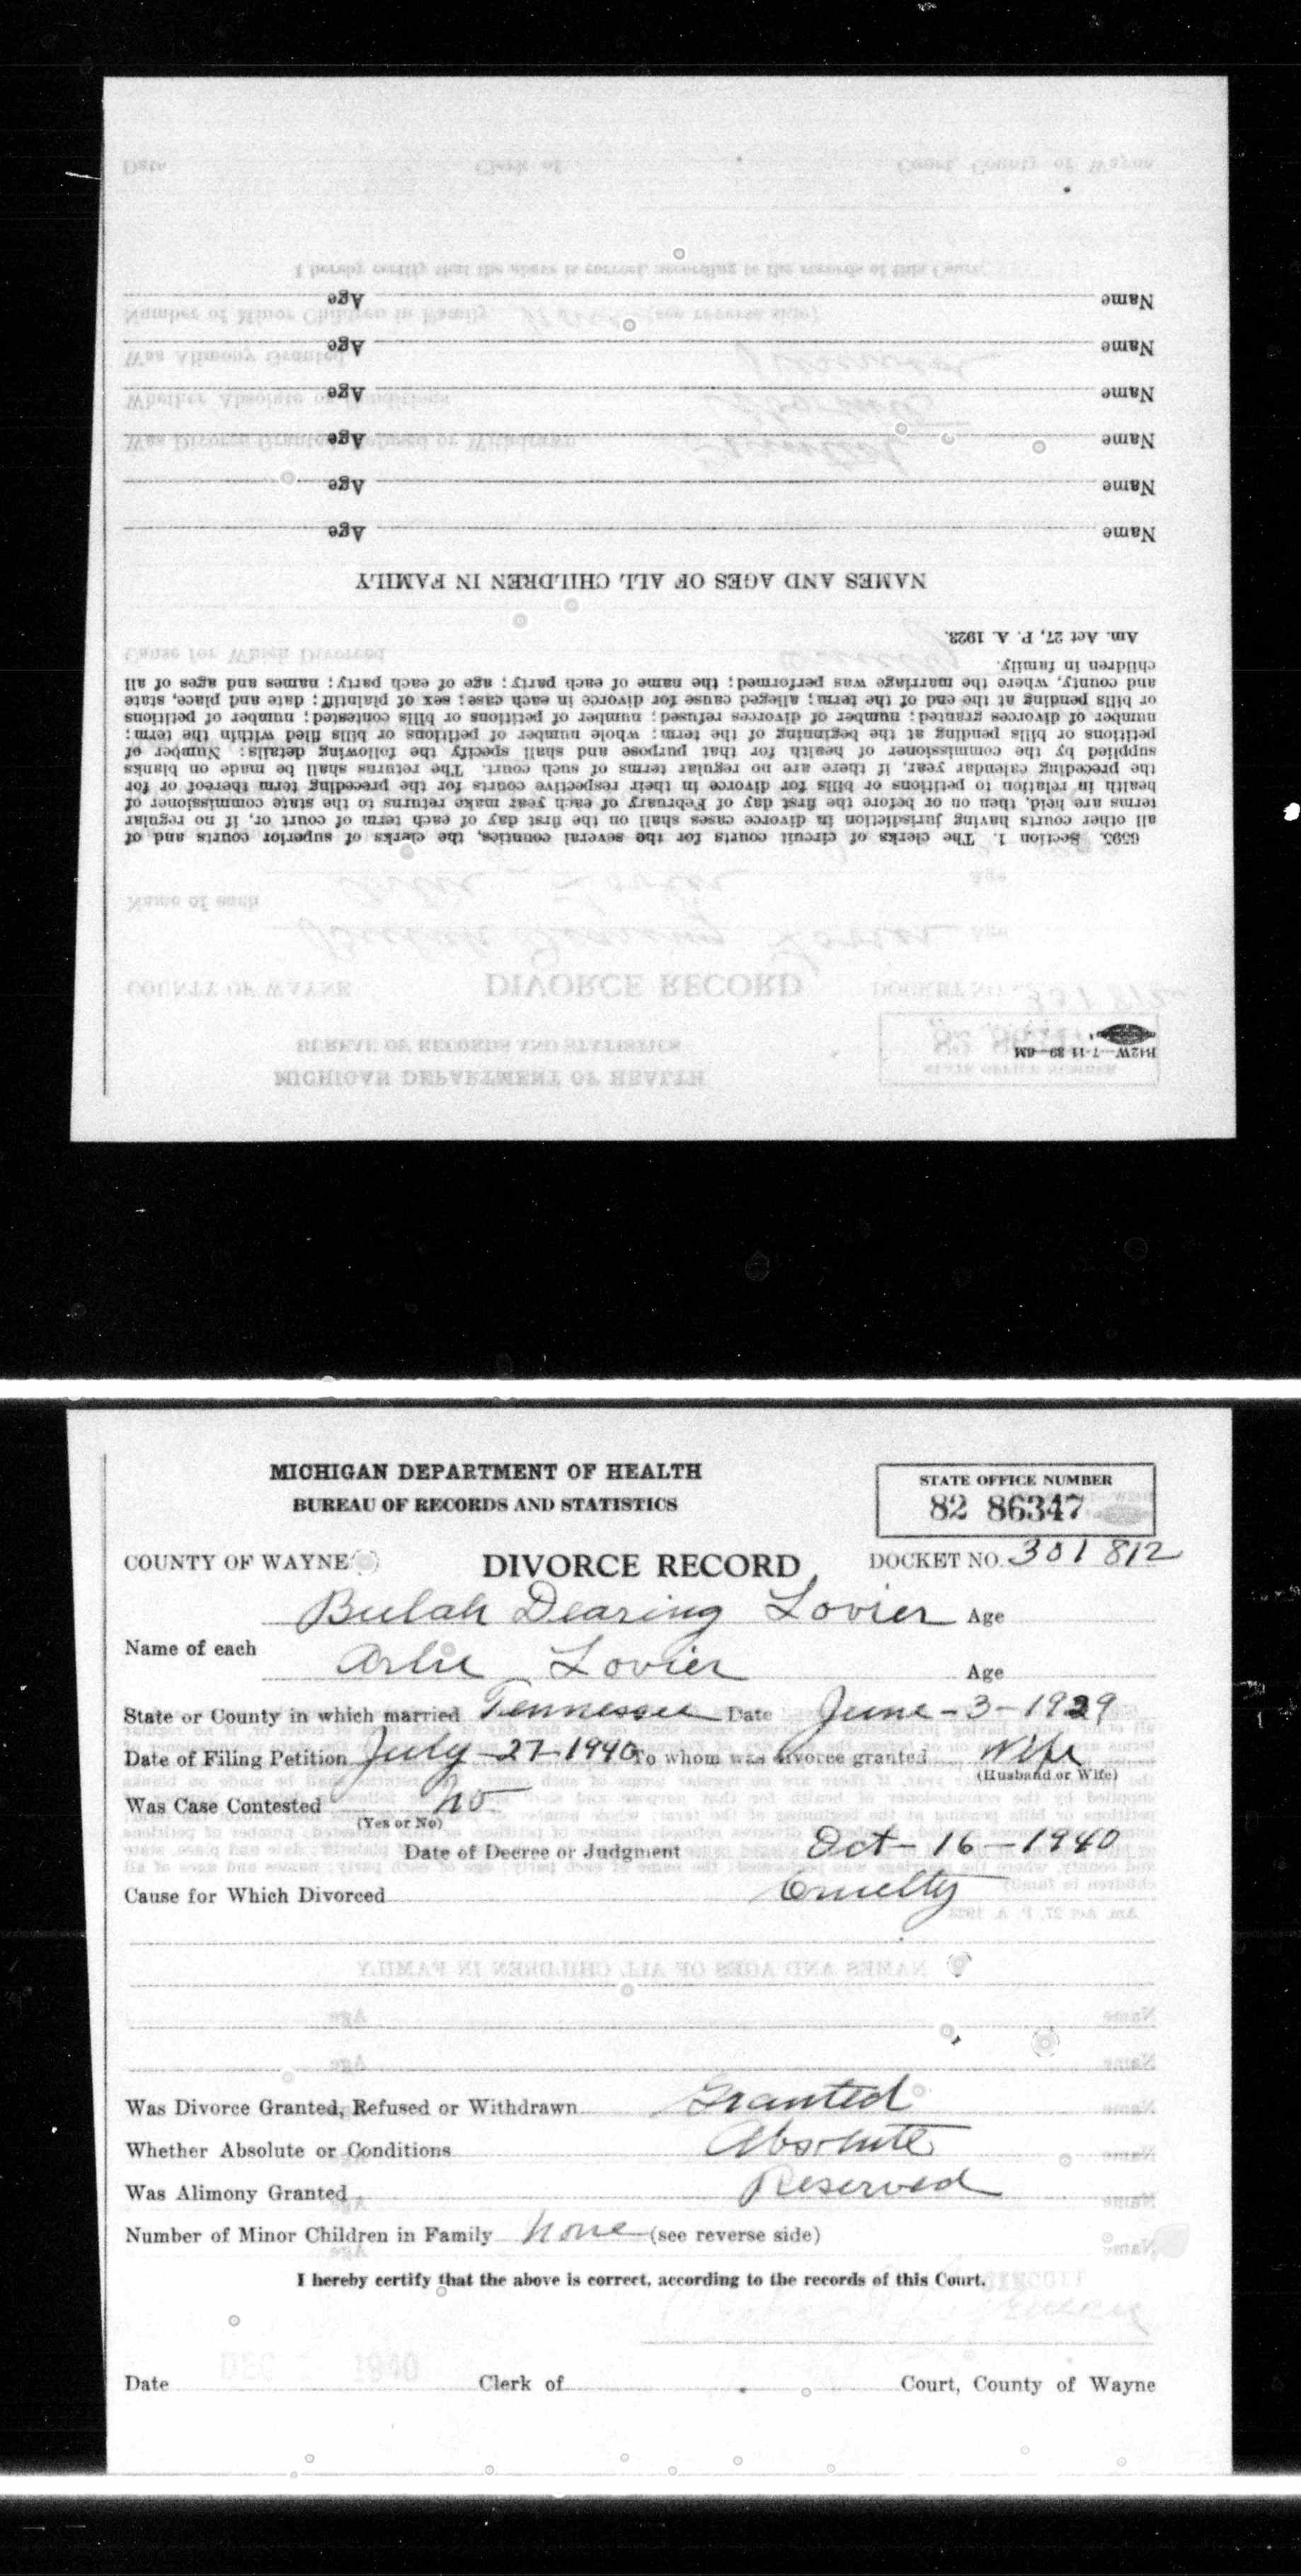 Name Age
Name Age
Name Age
Name Age
Name Age
Name Age
NAMES AND AGES OF ALL CHILDREN IN FAMILY
Am. Act 27, P. A. 1923.
6595. Section 1. The clerks of circuit courts for the several counties, the clerks of superior courts and of
all other courts having jurisdiction in divorce cases shall on the first day of each term of court or, if no regular
terms are held, then on or before the first day of February of each year make returns to the state commissioner of
health in relation to petitions or bills for divorce in their respective courts for the preceding term thereof or for
the preceding calendar year, if there are no regular terms of such court. The returns shall be made on blanks
supplied by the commissioner of health for that purpose and shall specify the following details: Number of
petitions or bills pending at the beginning of the term; whole number of petitions or bills filed within the term;
number of divorces granted; number of divorces refused; number of petitions or bills contested; number of petitions
or bills pending at the end of the term; alleged cause for divorce in each case; sex of plaintiff; date and place, state
and county, where the marriage was performed; the name of each party; age of each party; names and ages of all
children in family.
R42W—7-11-39—6M
MICHIGAN DEPARTMENT OF HEALTH
BUREAU OF RECORDS AND STATISTICS
STATE OFFICE NUMBER
82 86347
COUNTY OF WAYNE DIVORCE RECORD DOCKET NO. 301 812
Beulah Dearing Lovier Age
Name of each
Arlie Lovier Age
State or County in which married Tennessee Date June-3-1929
Date of Filing Petition July-27-1940 To whom was divorce granted Wife
(Husband or Wife)
Was Case Contested no
(Yes or No)
Date of Decree or Judgment Oct-16-1940
Cause for Which Divorced Cruelty
Was Divorce Granted, Refused or Withdrawn Granted
Whether Absolute or Conditions Absolute
Was Alimony Granted Reserved
Number of Minor Children in Family none (see reverse side)
I hereby certify that the above is correct, according to the records of this Court.
DEC 1940
Date Clerk of Court, County of Wayne